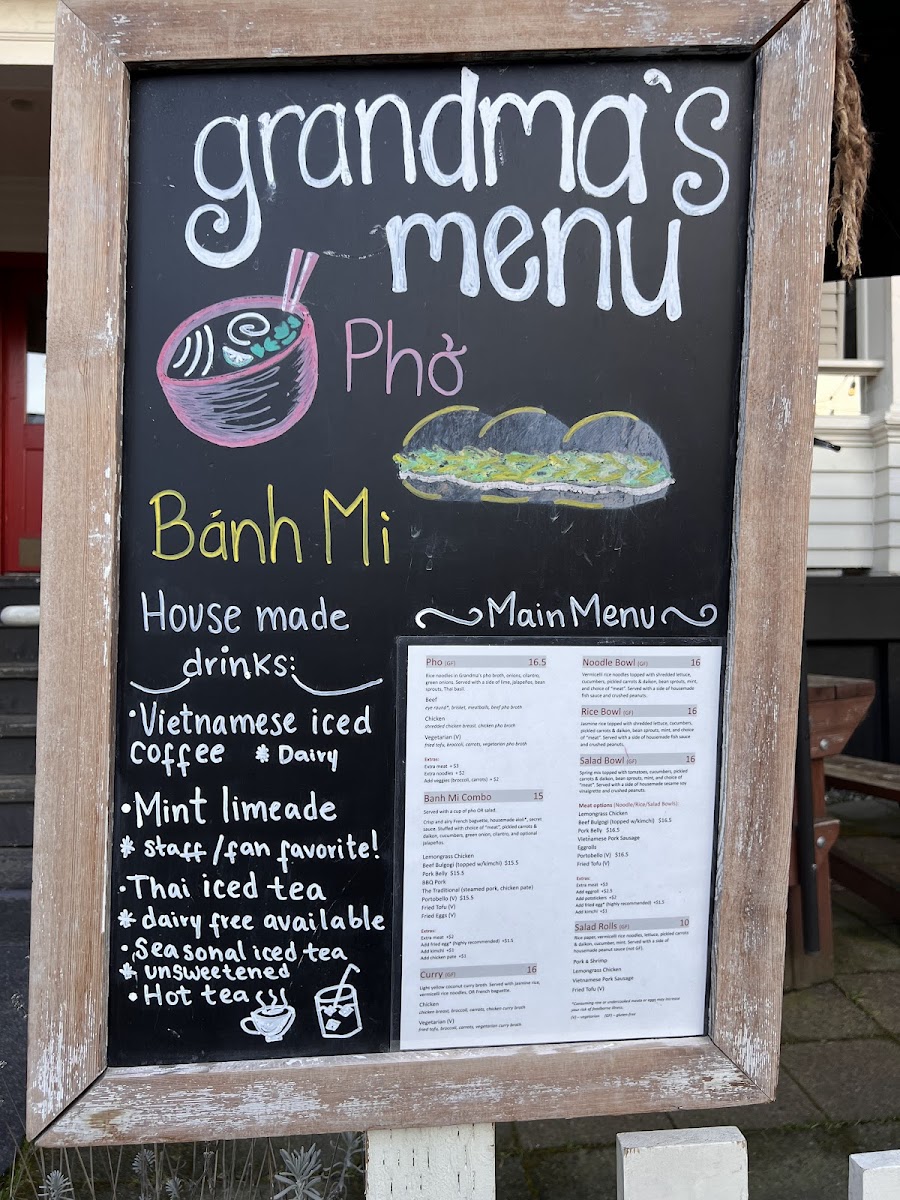 grandma's
menu
Phở
Bánh Mi
House made
drinks:
• Vietnamese iced
coffee * Dairy
• Mint limeade
* staff/fan favorite!
• Thai iced tea
* dairy free available
• Seasonal iced tea
* unsweetened
• Hot tea
Main Menu
Pho (GF) 16.5
Rice noodles in Grandma's pho broth, onions, cilantro,
green onions. Served with a side of lime, jalapeños, bean
sprouts, Thai basil.
Beef
eye round*, brisket, meatballs, beef pho broth
Chicken
shredded chicken breast, chicken pho broth
Vegetarian (V)
fried tofu, broccoli, carrots, vegetarian pho broth
Extras:
Extra meat + $3
Extra noodles + $2
Add veggies (broccoli, carrots) + $2
Banh Mi Combo 15
Served with a cup of pho OR salad.
Crisp and airy French baguette, housemade aioli*, secret
sauce. Stuffed with choice of "meat", pickled carrots &
daikon, cucumbers, green onion, cilantro, and optional
jalapeños.
Lemongrass Chicken
Beef Bulgogi (topped w/kimchi) $15.5
Pork Belly $15.5
BBQ Pork
The Traditional (steamed pork, chicken pate)
Portobello (V) $15.5
Fried Tofu (V)
Fried Eggs (V)
Extras:
Extra meat +$2
Add fried egg* (highly recommended) +$1.5
Add kimchi +$1
Add chicken pate +$1
Curry (GF) 16
Light yellow coconut curry broth. Served with jasmine rice,
vermicelli rice noodles, OR French baguette.
Chicken
chicken breast, broccoli, carrots, chicken curry broth
Vegetarian (V)
fried tofu, broccoli, carrots, vegetarian curry broth
Noodle Bowl (GF) 16
Vermicelli rice noodles topped with shredded lettuce,
cucumbers, pickled carrots & daikon, bean sprouts, mint,
and choice of "meat". Served with a side of housemade
fish sauce and crushed peanuts.
Rice Bowl (GF) 16
Jasmine rice topped with shredded lettuce, cucumbers,
pickled carrots & daikon, bean sprouts, mint, and choice
of "meat". Served with a side of housemade fish sauce
and crushed peanuts.
Salad Bowl (GF) 16
Spring mix topped with tomatoes, cucumbers, pickled
carrots & daikon, bean sprouts, mint, and choice of
"meat". Served with a side of housemade sesame soy
vinaigrette and crushed peanuts.
Meat options (Noodle/Rice/Salad Bowls):
Lemongrass Chicken
Beef Bulgogi (topped w/kimchi) $16.5
Pork Belly $16.5
Vietnamese Pork Sausage
Eggrolls
Portobello (V) $16.5
Fried Tofu (V)
Extras:
Extra meat +$3
Add eggroll +$2.5
Add potstickers +$2
Add fried egg* (highly recommended) +$1.5
Add kimchi +$1
Salad Rolls (GF) 10
Rice paper, vermicelli rice noodles, lettuce, pickled carrots
& daikon, cucumber, mint. Served with a side of
housemade peanut sauce (not GF).
Pork & Shrimp
Lemongrass Chicken
Vietnamese Pork Sausage
Fried Tofu (V)
*Consuming raw or undercooked meats or eggs may increase
your risk of foodborne illness.
(V) – vegetarian (GF) – gluten-free